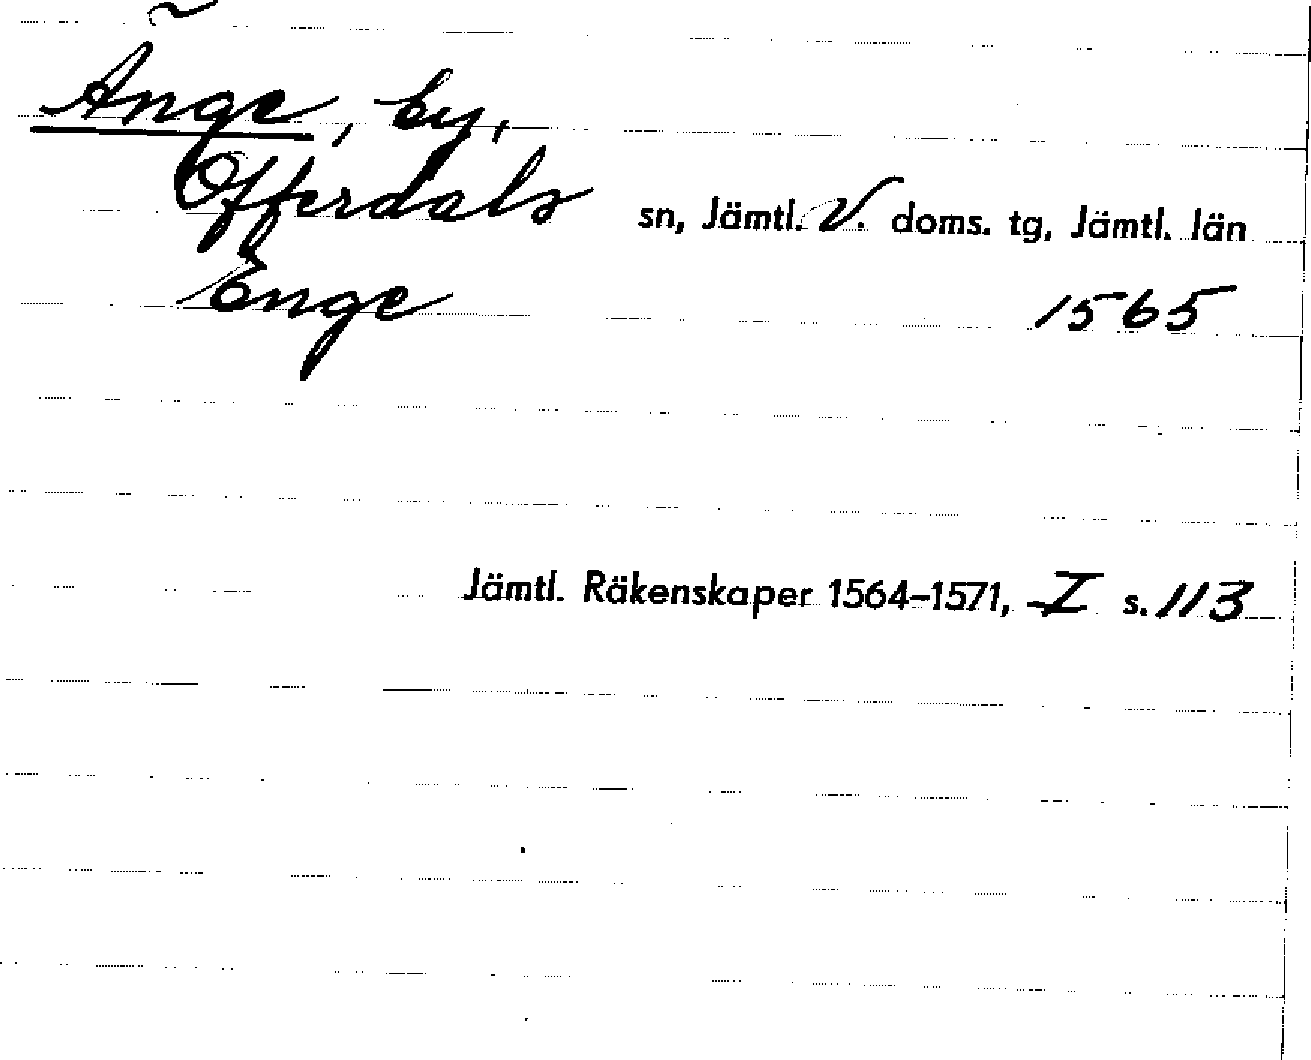 Änge, by,
Offerdals sn, Jämtl. V. doms. tg, Jämtl. län
Enge 1565
Jämtl. Räkenskaper 1564–1571, I s. 113